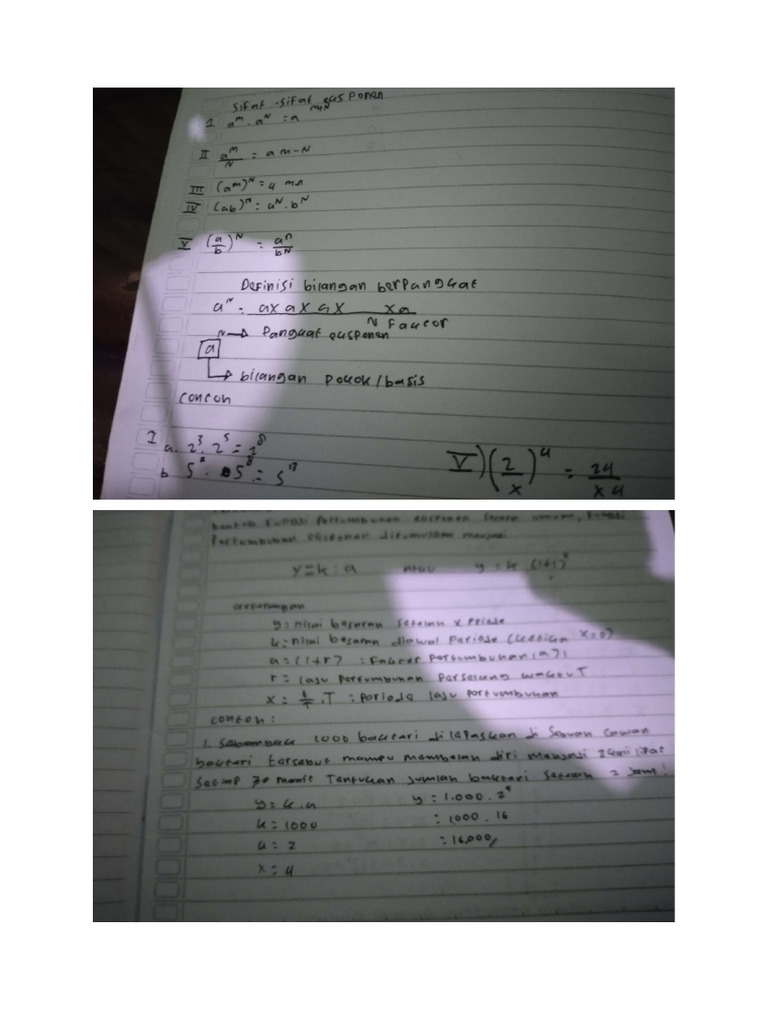 Sifat-sifat eusponen
I a^m . a^N = a^m+N
II a^m/N = a m-N
III (a^m)^N = a m.n
IV (ab)^N = a^N . b^N
V (a/b)^N = a^n/b^N
Definisi bilangan berpangkat
a^n = a x a x a x x a
N Faktor
N → Pangkat eusponen
a
bilangan Pokok/basis
Contoh
I a. 2^3 . 2^5 = 2^8
b. 5 . 5^8 = 5^13
V) (2/x)^4 = 24/x4
bentuk Fungsi Pertumbuhan eksponen secara umum, Fungsi
Pertumbuhan eksponen dirumuskan menjadi
y = k . a atau y = k . (1+r)^x
keterangan
y = nilai besaran setelah x Periode
k = nilai besaran diawal Periode (ketika x=0)
a = (1+r) : Faktor pertumbuhan, a>1
r = laju pertumbuhan Perselang waktu T
x = t/T, T : periode laju pertumbuhan
contoh :
1. 1000 bakteri di lepaskan di sebuah cawan
bakteri tersebut mampu membelah diri menjadi 2 kali lipat
setiap 30 menit Tentukan jumlah bakteri setelah 2 jam!
y = k . a y = 1.000 . 2^4
k = 1000 = 1000 . 16
a = 2 = 16.000
x = 4